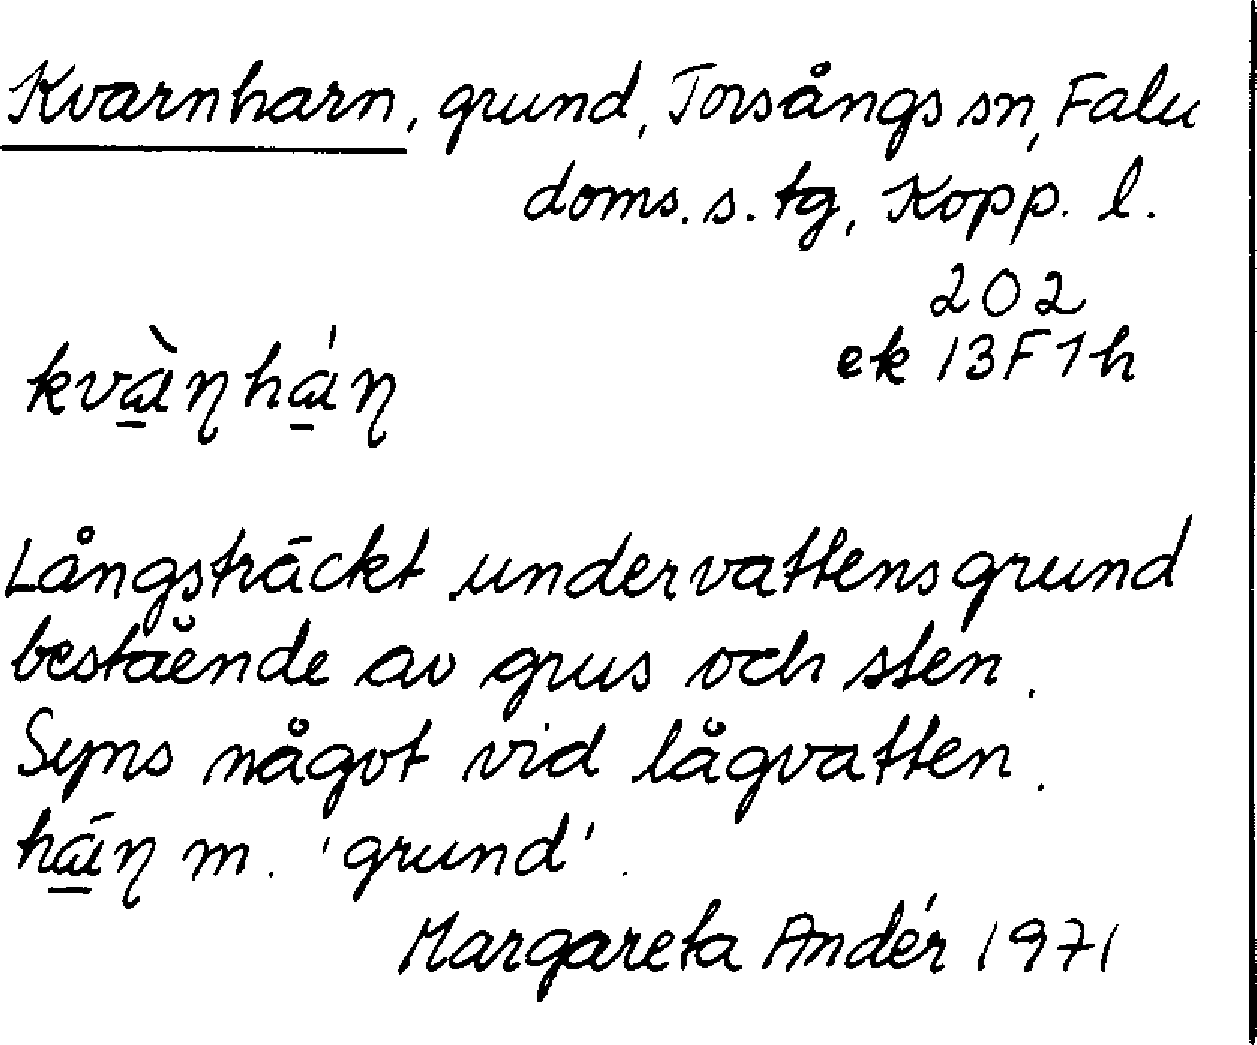 Kvarnharn, grund, Torsångs sn, Falu
doms. s. tg, Kopp. l.
202
ek 13F1h
kvà̱ɳhá̱ɳ
Långsträckt undervattensgrund
bestående av grus och sten.
Syns något vid lågvatten.
há̱ɳ m. 'grund'.
Margareta Andér 1971